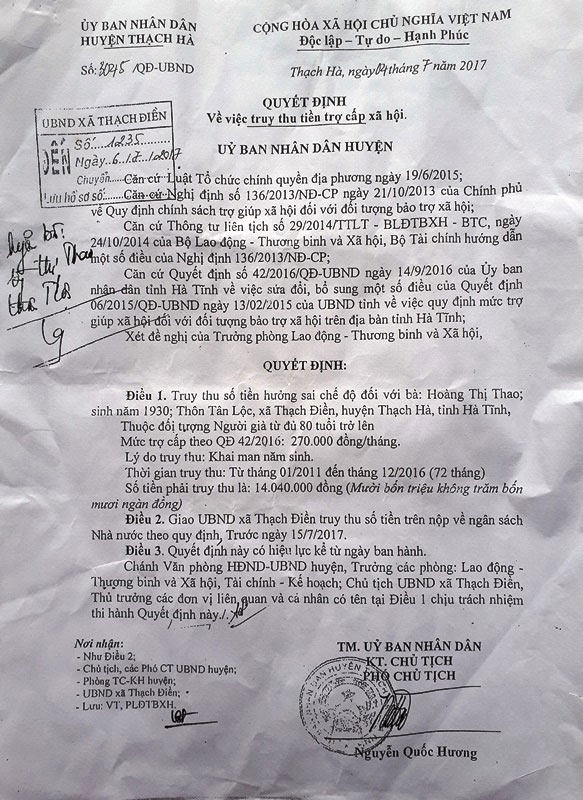 ỦY BAN NHÂN DÂN
HUYỆN THẠCH HÀ
Số: 3045/QĐ-UBND
CỘNG HÒA XÃ HỘI CHỦ NGHĨA VIỆT NAM
Độc lập – Tự do – Hạnh Phúc
Thạch Hà, ngày 04 tháng 7 năm 2017
QUYẾT ĐỊNH
Về việc truy thu tiền trợ cấp xã hội.
UBND XÃ THẠCH ĐIỀN
ĐẾN
Số: 1235
Ngày 6/7/2017
Chuyển
Lưu hồ sơ số
ỦY BAN NHÂN DÂN HUYỆN
Căn cứ Luật Tổ chức chính quyền địa phương ngày 19/6/2015;
Căn cứ Nghị định số 136/2013/NĐ-CP ngày 21/10/2013 của Chính phủ
về Quy định chính sách trợ giúp xã hội đối với đối tượng bảo trợ xã hội;
Căn cứ Thông tư liên tịch số 29/2014/TTLT - BLĐTBXH - BTC, ngày
24/10/2014 của Bộ Lao động - Thương binh và Xã hội, Bộ Tài chính hướng dẫn
một số điều của Nghị định 136/2013/NĐ-CP;
Căn cứ Quyết định số 42/2016/QĐ-UBND ngày 14/9/2016 của Ủy ban
nhân dân tỉnh Hà Tĩnh về việc sửa đổi, bổ sung một số điều của Quyết định
06/2015/QĐ-UBND ngày 13/02/2015 của UBND tỉnh về việc quy định mức trợ
giúp xã hội đối với đối tượng bảo trợ xã hội trên địa bàn tỉnh Hà Tĩnh;
Xét đề nghị của Trưởng phòng Lao động - Thương binh và Xã hội,
QUYẾT ĐỊNH:
Điều 1. Truy thu số tiền hưởng sai chế độ đối với bà: Hoàng Thị Thao;
sinh năm 1930; Thôn Tân Lộc, xã Thạch Điền, huyện Thạch Hà, tỉnh Hà Tĩnh,
Thuộc đối tượng Người già từ đủ 80 tuổi trở lên
Mức trợ cấp theo QĐ 42/2016: 270.000 đồng/tháng.
Lý do truy thu: Khai man năm sinh.
Thời gian truy thu: Từ tháng 01/2011 đến tháng 12/2016 (72 tháng)
Số tiền phải truy thu là: 14.040.000 đồng (Mười bốn triệu không trăm bốn
mươi ngàn đồng)
Điều 2. Giao UBND xã Thạch Điền truy thu số tiền trên nộp về ngân sách
Nhà nước theo quy định, Trước ngày 15/7/2017.
Điều 3. Quyết định này có hiệu lực kể từ ngày ban hành.
Chánh Văn phòng HĐND-UBND huyện, Trưởng các phòng: Lao động -
Thượng binh và Xã hội, Tài chính - Kế hoạch; Chủ tịch UBND xã Thạch Điền,
Thủ trưởng các đơn vị liên quan và cá nhân có tên tại Điều 1 chịu trách nhiệm
thi hành Quyết định này./.
Nơi nhận:
- Như Điều 2;
- Chủ tịch, các Phó CT UBND huyện;
- Phòng TC-KH huyện;
- UBND xã Thạch Điền;
- Lưu: VT, PLĐTBXH.
TM. UỶ BAN NHÂN DÂN
KT. CHỦ TỊCH
PHÓ CHỦ TỊCH
Nguyễn Quốc Hương